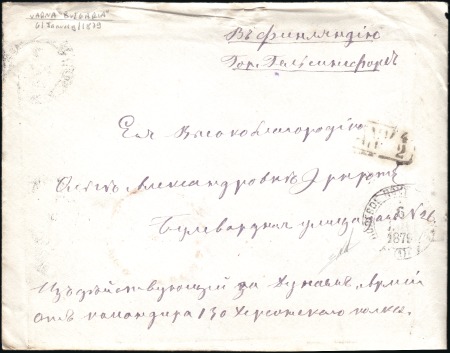 VARNA BULGARIA
6/ /1879
Въ Финляндію
Гор. Гельсингфорсъ
Ея Высокоблагородію
Александровнѣ
Бульвардная улица домъ № 26.
1879
Изъ дѣйствующей за Дунаемъ Арміи
отъ командира 130 Херсонскаго полка.